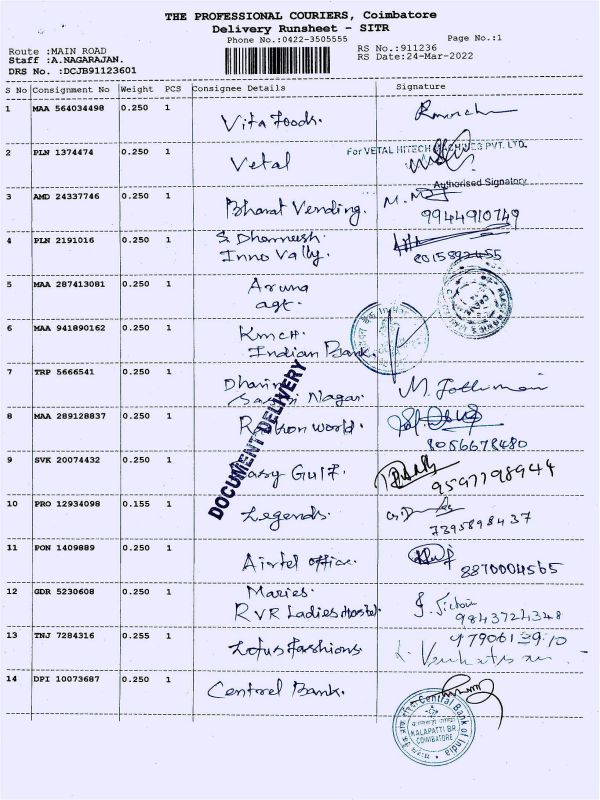 THE PROFESSIONAL COURIERS, Coimbatore
Delivery Runsheet - SITR
Phone No.:0422-3505555
Page No.:1
Route :MAIN ROAD
RS No.:911236
Staff :A.NAGARAJAN.
RS Date:24-Mar-2022
DRS No. :DCJB91123601
S No Consignment No Weight PCS Consignee Details Signature
1 MAA 564034498 0.250 1 Vita Foods.
2 PLN 1374474 0.250 1 Vetal For VETAL HITECH MACHINES PVT. LTD.
Authorised Signatory
3 AMD 24337746 0.250 1 Bharat Vending. 9944910749
4 PLN 2191016 0.250 1 S. Dhanush.
Inno Vally. 8015892455
5 MAA 287413081 0.250 1 Aruna
agt.
6 MAA 941890162 0.250 1 KMCH.
Indian Bank.
7 TRP 5666541 0.250 1 Nagar.
8 MAA 289128837 0.250 1 world. 8056678480
DOCUMENT DELIVERY
9 SVK 20074432 0.250 1 Easy Gulf. 9597798944
10 PRO 12934098 0.155 1 Legends. 7395898437
11 PON 1409889 0.250 1 Airtel office. 8870004565
12 GDR 5230608 0.250 1 Maries.
RVR Ladies Hostel. 9843724348
13 TNJ 7284316 0.255 1 Lotus Fashions
14 DPI 10073687 0.250 1 Central Bank.
Central Bank of India
KALAPATTI BR.
COIMBATORE